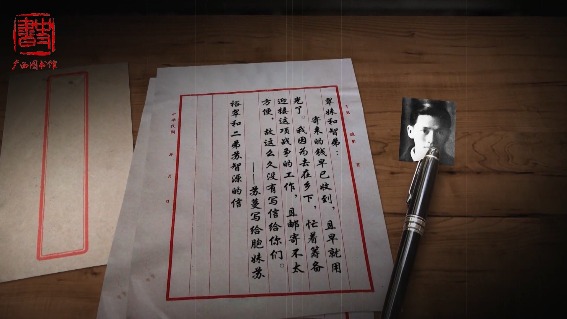 广西图书馆
翠妹和智弟:
寄来的钱早已收到,且早就用
光了。我因为去在乡下,忙着筹备
迎接这项战争的工作,且邮寄不太
方便,故这么久没有写信给你们。
——苏蔓写给胞妹苏
裕翠和二弟苏智源的信